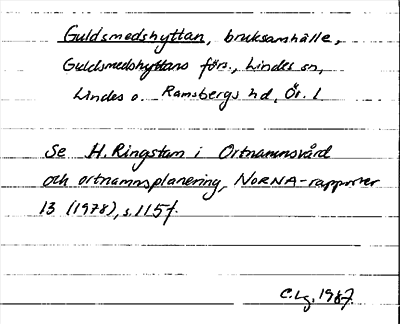 Guldsmedshyttan, bruksamhälle,
Guldsmedshyttans förs., Lindes sn,
Lindes o. Ramsbergs hd, Ör. l
Se H. Ringstam i Ortnamnsvård
och ortnamnsplanering, NORNA-rapporter
13 (1978), s. 115f.
C. Lg. 1987.